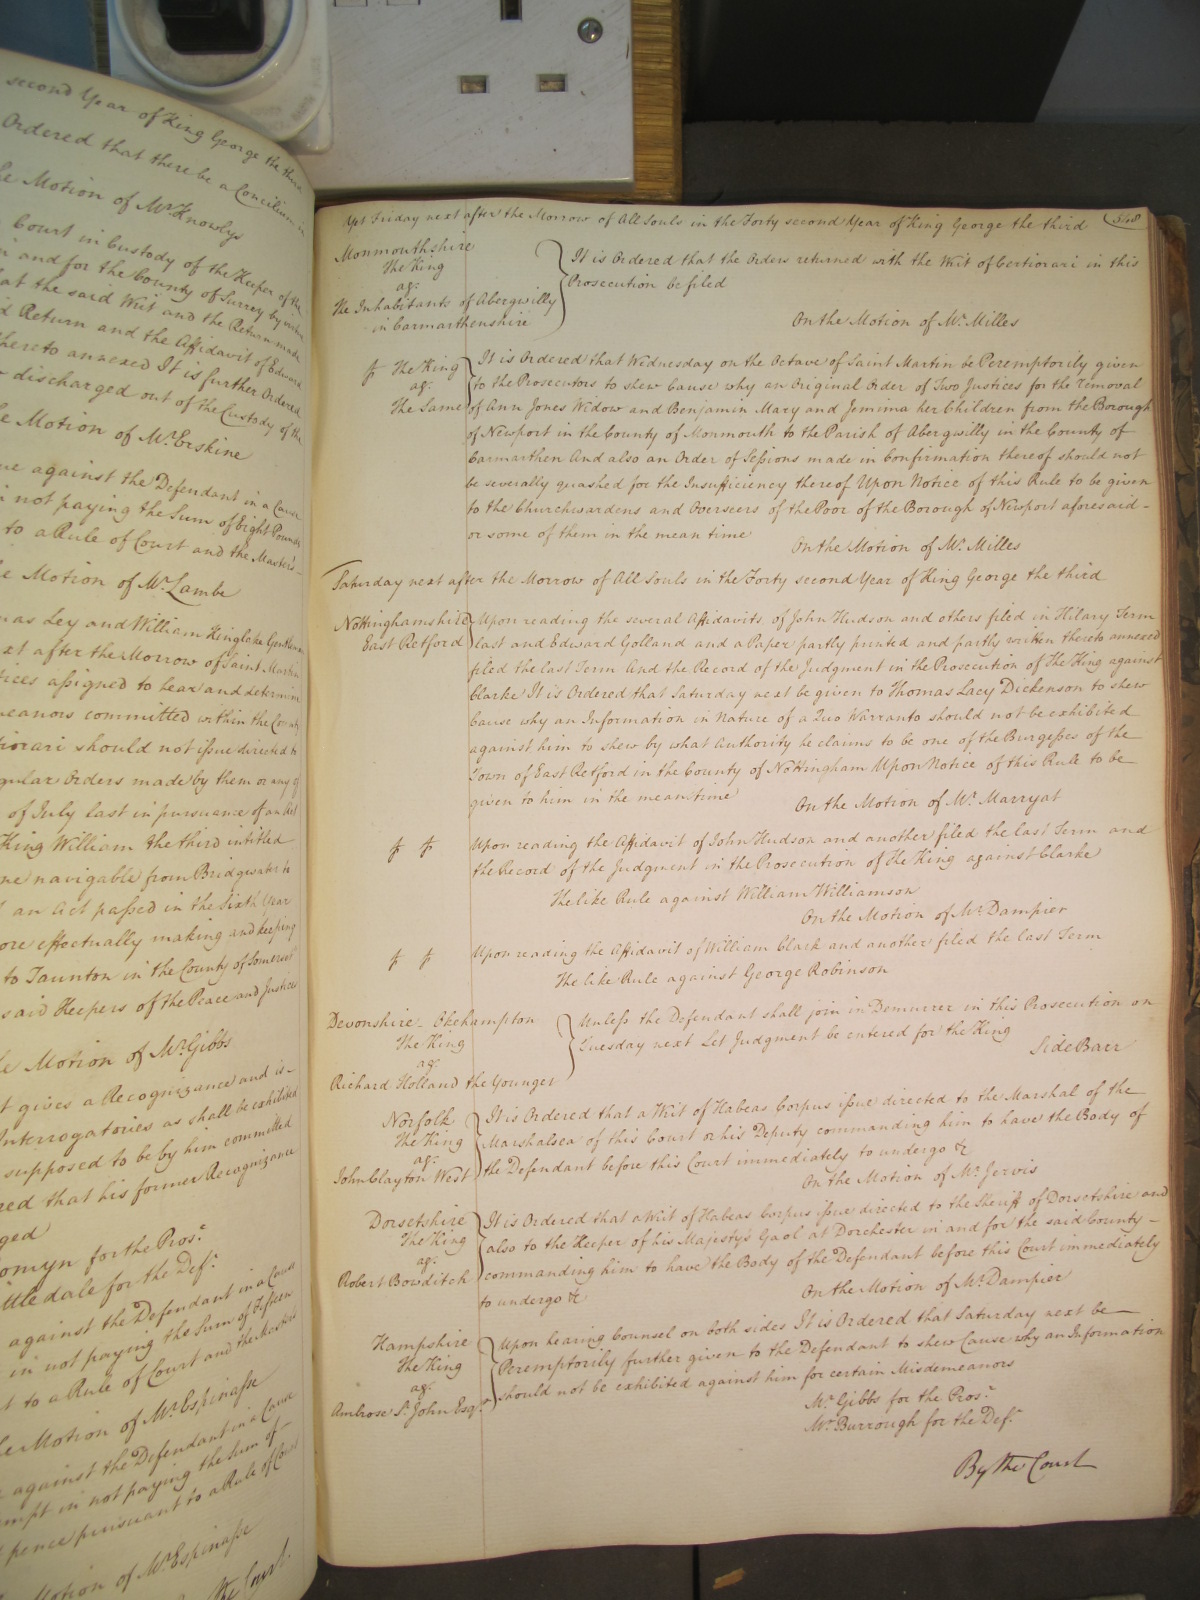 second Year of King George the third
Ordered that there be a Concilium in
Motion of Mr. Knowlys
Court in Custody of the Keeper of the
in and for the County of Surrey by virtue
at the said Writ and the Return made
Return and the Affidavit of Edward
thereto annexed It is further Ordered
discharged out of the Custody of the
Motion of Mr. Erskine
against the Defendant in a Cause
not paying the Sum of Eight Pounds
to a Rule of Court and the Master's
Motion of Mr. Lamb
Ley and William Kinglake Gentlemen
after the Morrow of Saint Martin
assigned to hear and determine
committed within the County
should not issue directed to
Orders made by them or any of
of July last in pursuance of an Act
King William the third intitled
navigable from Bridgwater to
an Act passed in the Sixth Year
effectually making and keeping
to Taunton in the County of Somerset
said Keepers of the Peace and Justices
Motion of Mr. Gibbs
gives a Recognizance and is
Interrogatories as shall be exhibited
supposed to be by him committed
that his former Recognizance
for the Pros.r
for the Def.t
against the Defendant in a Cause
in not paying the Sum of Fifteen
to a Rule of Court and the Master's
Motion of Mr. Espinasse
against the Defendant in a Cause
in not paying the Sum of
pence pursuant to a Rule of Court
Motion of Mr. Espinasse
the Court
Yet Friday next after the Morrow of All Souls in the Forty second Year of King George the third
548
Monmouthshire
The King
ag.t
The Inhabitants of Abergwilly
in Carmarthenshire
It is Ordered that the Orders returned with the Writ of Certiorari in this
Prosecution be filed
On the Motion of Mr. Milles
The King
ag.t
The Same
It is Ordered that Wednesday on the Octave of Saint Martin be Peremptorily given
to the Prosecutors to shew Cause why an Original Order of Two Justices for the removal
of Ann Jones Widow and Benjamin Mary and Jemima her Children from the Borough
of Newport in the County of Monmouth to the Parish of Abergwilly in the County of
Carmarthen And also an Order of Sessions made in Confirmation thereof should not
be severally quashed for the Insufficiency thereof Upon Notice of this Rule to be given
to the Churchwardens and Overseers of the Poor of the Borough of Newport aforesaid -
or some of them in the mean time
On the Motion of Mr. Milles
Saturday next after the Morrow of All Souls in the Forty second Year of King George the third
Nottinghamshire
East Retford
Upon reading the several Affidavits of John Hudson and others filed in Hilary Term
last and Edward Golland and a Paper partly printed and partly written thereto annexed
filed the last Term And the Record of the Judgment in the Prosecution of The King against
Clarke It is Ordered that Saturday next be given to Thomas Lacy Dickenson to shew
Cause why an Information in Nature of a Quo Warranto should not be exhibited
against him to shew by what Authority he claims to be one of the Burgesses of the
Town of East Retford in the County of Nottingham Upon Notice of this Rule to be
given to him in the mean time
On the Motion of Mr. Marryat
Upon reading the Affidavit of John Hudson and another filed the last Term and
the Record of the Judgment in the Prosecution of The King against Clarke
The like Rule against William Williamson
On the Motion of Mr. Dampier
Upon reading the Affidavit of William Clark and another filed the last Term
The like Rule against George Robinson
Devonshire - Okehampton
The King
ag.t
Richard Holland the Younger
Unless the Defendant shall join in Demurrer in this Prosecution on
Tuesday next Let Judgment be entered for the King
Side Barr
Norfolk
The King
ag.t
John Clayton West
It is Ordered that a Writ of Habeas Corpus issue directed to the Marshal of the
Marshalsea of this Court or his Deputy commanding him to have the Body of
the Defendant before this Court immediately to undergo &c
On the Motion of Mr. Jervis
Dorsetshire
The King
ag.t
Robert Bowditch
It is Ordered that a Writ of Habeas Corpus issue directed to the Sheriff of Dorsetshire and
also to the Keeper of his Majesty's Gaol at Dorchester in and for the said County -
commanding him to have the Body of the Defendant before this Court immediately
to undergo &c
On the Motion of Mr. Dampier
Hampshire
The King
ag.t
Ambrose St. John Esq.r
Upon hearing Counsel on both sides It is Ordered that Saturday next be
Peremptorily further given to the Defendant to shew Cause why an Information
should not be exhibited against him for certain Misdemeanors
Mr. Gibbs for the Pros.r
Mr. Burrough for the Def.t
By the Court